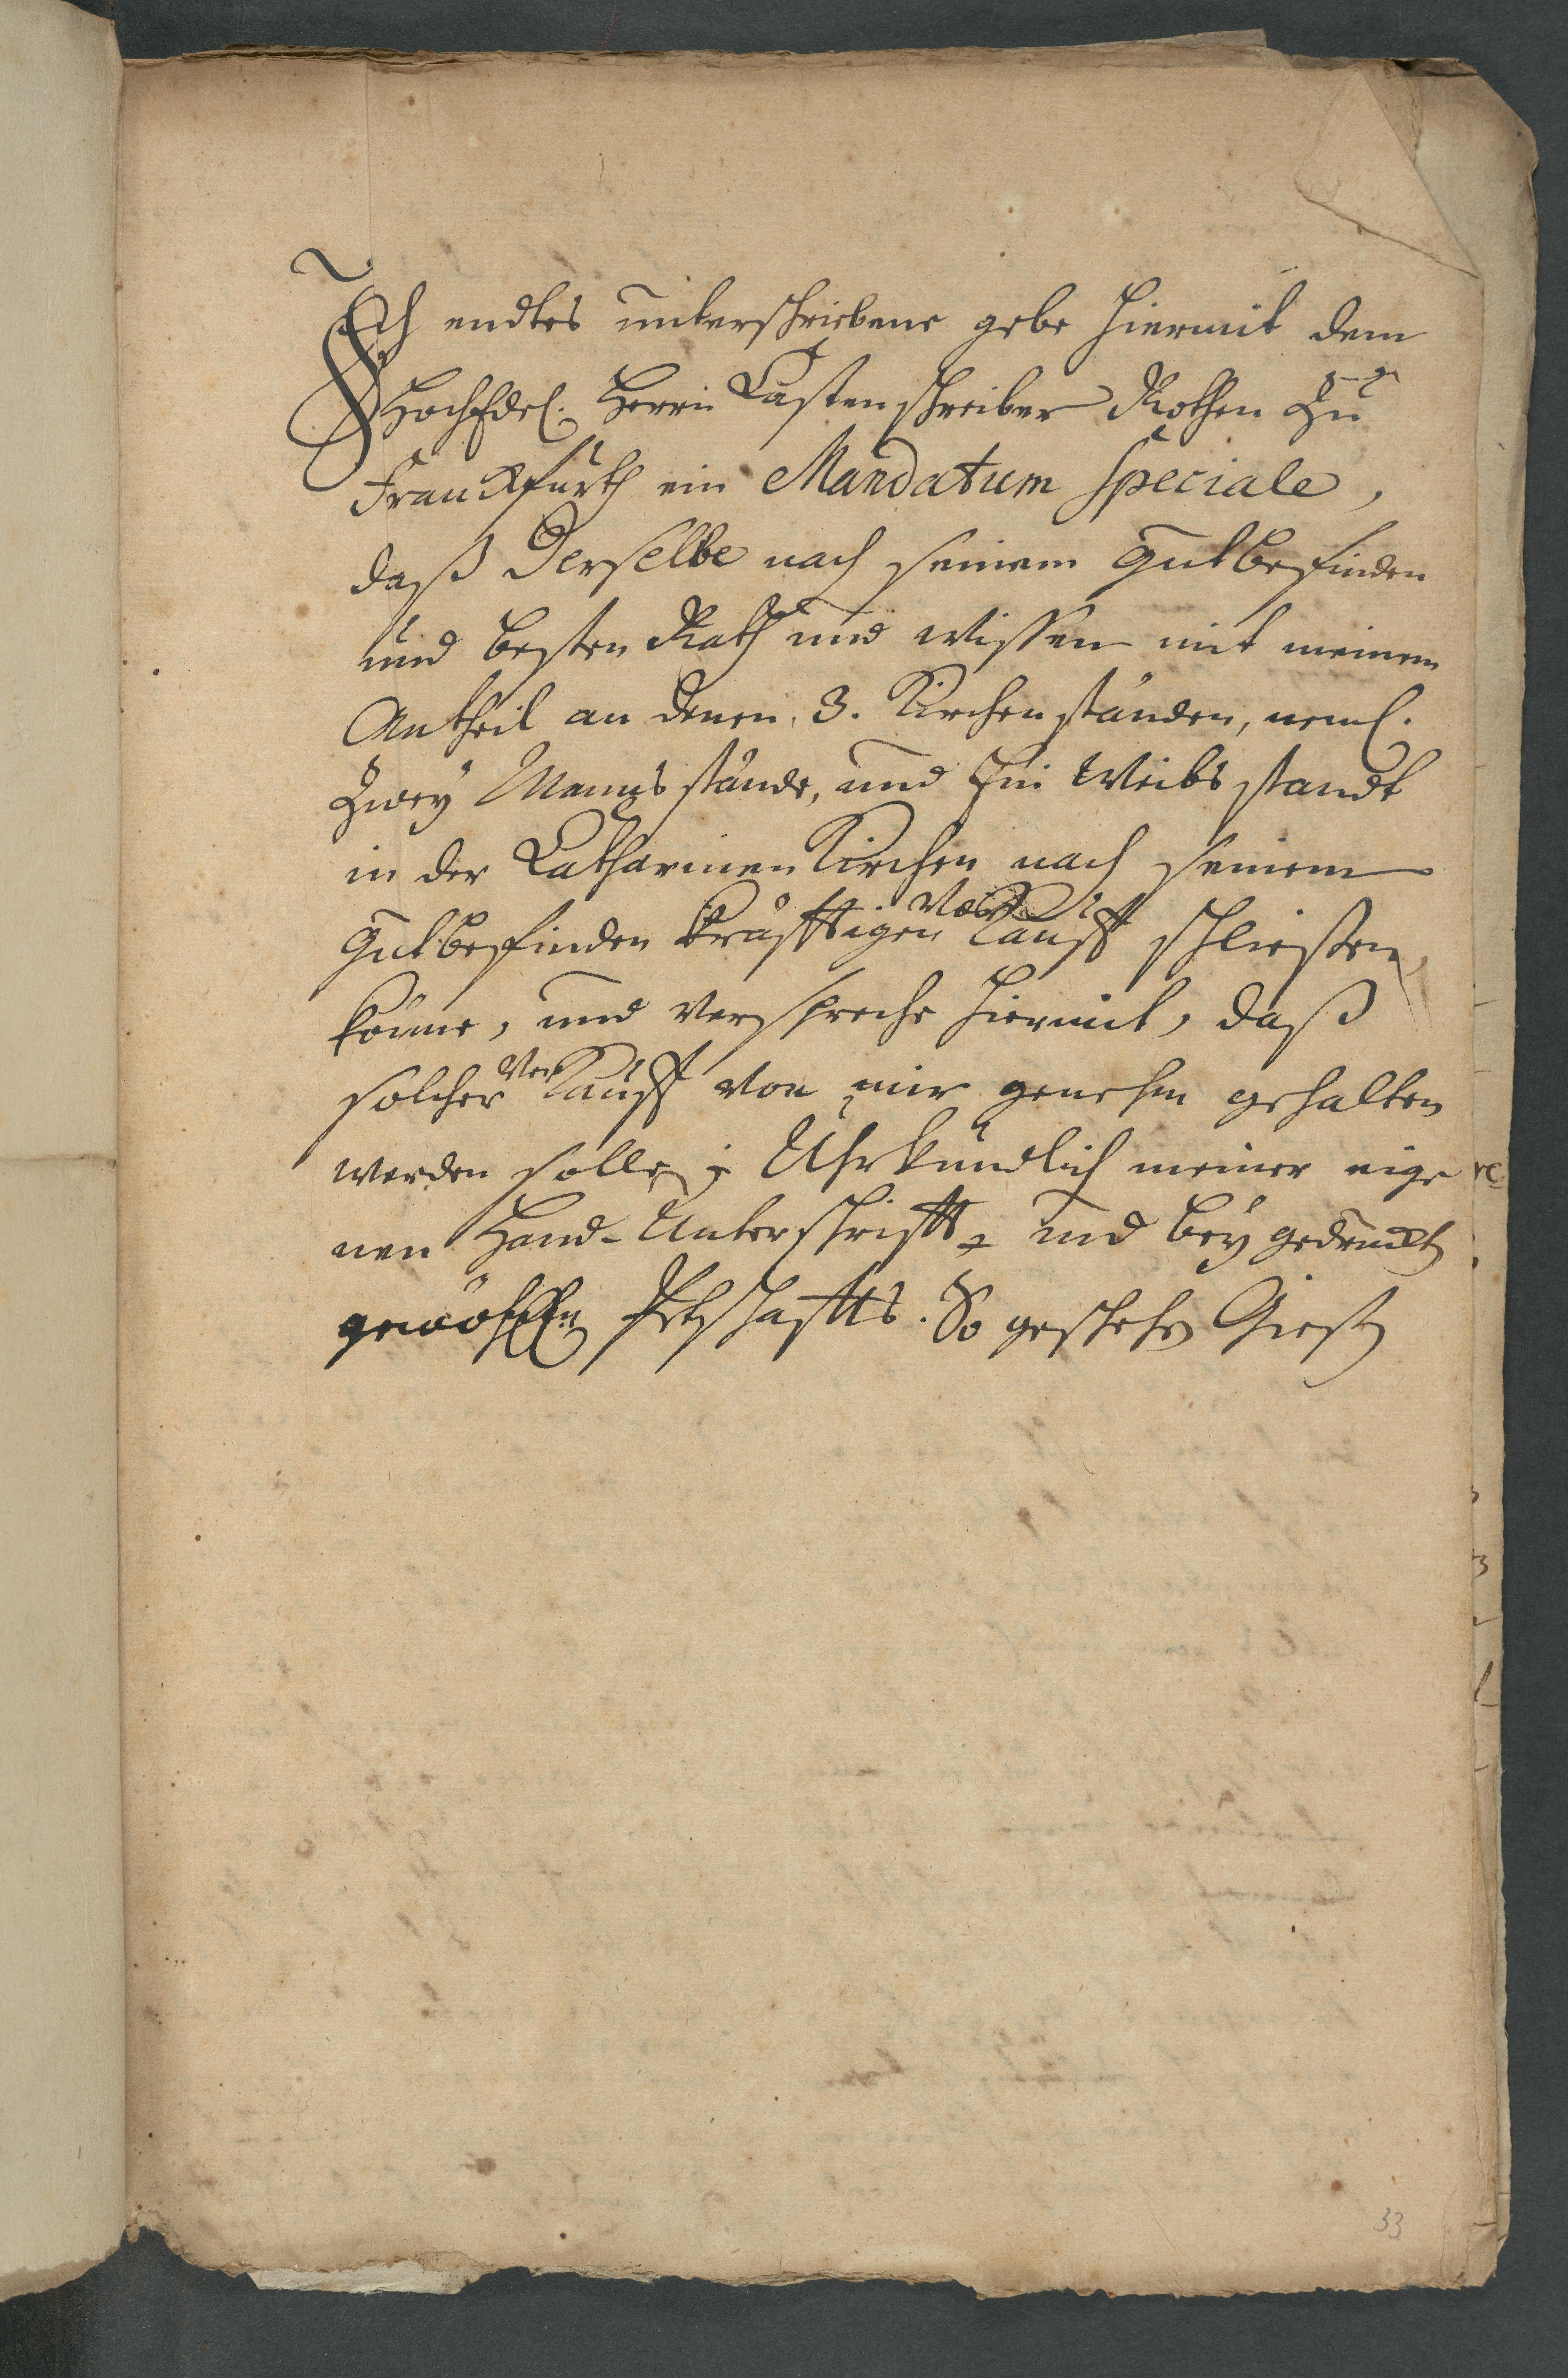 Ich endtes unterschriebene gebe hiermit dem
HochEdel. Herrn Castenschreiber Rothen zu
Franckfurth ein Mandatum speciale,
daß Derselbe nach seinem gutbefinden
und besten Rath und wissen mit meinem
Antheil an denen 3. Kirchenständen, neml.
Zwey Mannsstände, und Ein Weibsstandt
in der Catharinen Kirchen nach seinem
gutbefinden kräfftigen Ver Kauff schließen
könne, und verspreche hiermit, daß
solcher VerKauff von mir genehm gehalten
werden solle; Uhrkundlich meiner eige
nen Hand-Unterschrifft und beygedruckt
gewöhnl. Pettschaffts. So geschehen Gießen
33